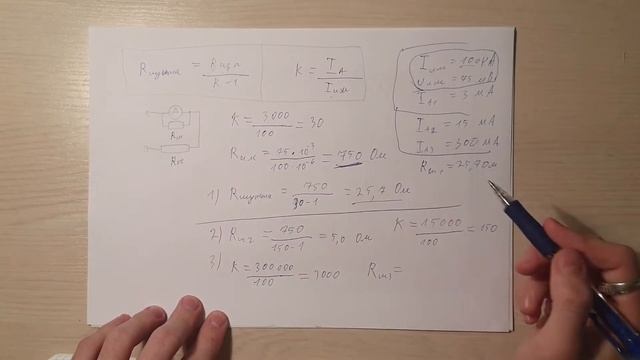 Rшунта = Rизм / K-1
K = IА / Iизм
Iизм = 100мкА
Uизм = 75 мВ
IА1 = 3 мА
IА2 = 15 мА
IА3 = 300 мА
Rш1 = 25,7 Ом
A
Rш
K = 3000 / 100 = 30
Rизм = 75·10⁻³ / 100·10⁻⁶ = 750 Ом
1) Rшунта = 750 / 30-1 = 25,7 Ом
2) Rш2 = 750 / 150-1 = 5,0 Ом K = 15000 / 100 = 150
3) K = 300000 / 100 = 3000 Rш3 =